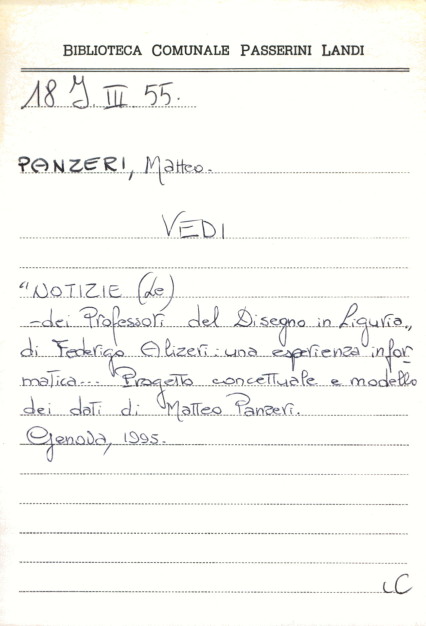 BIBLIOTECA COMUNALE PASSERINI LANDI
18 J. III 55.
PANZERI, Matteo.
VEDI
"NOTIZIE (Le)
-dei Professori del Disegno in Liguria„
di Federigo Alizeri: una esperienza infor
matica... Progetto concettuale e modello
dei dati di Matteo Panzeri.
Genova, 1995.
LC